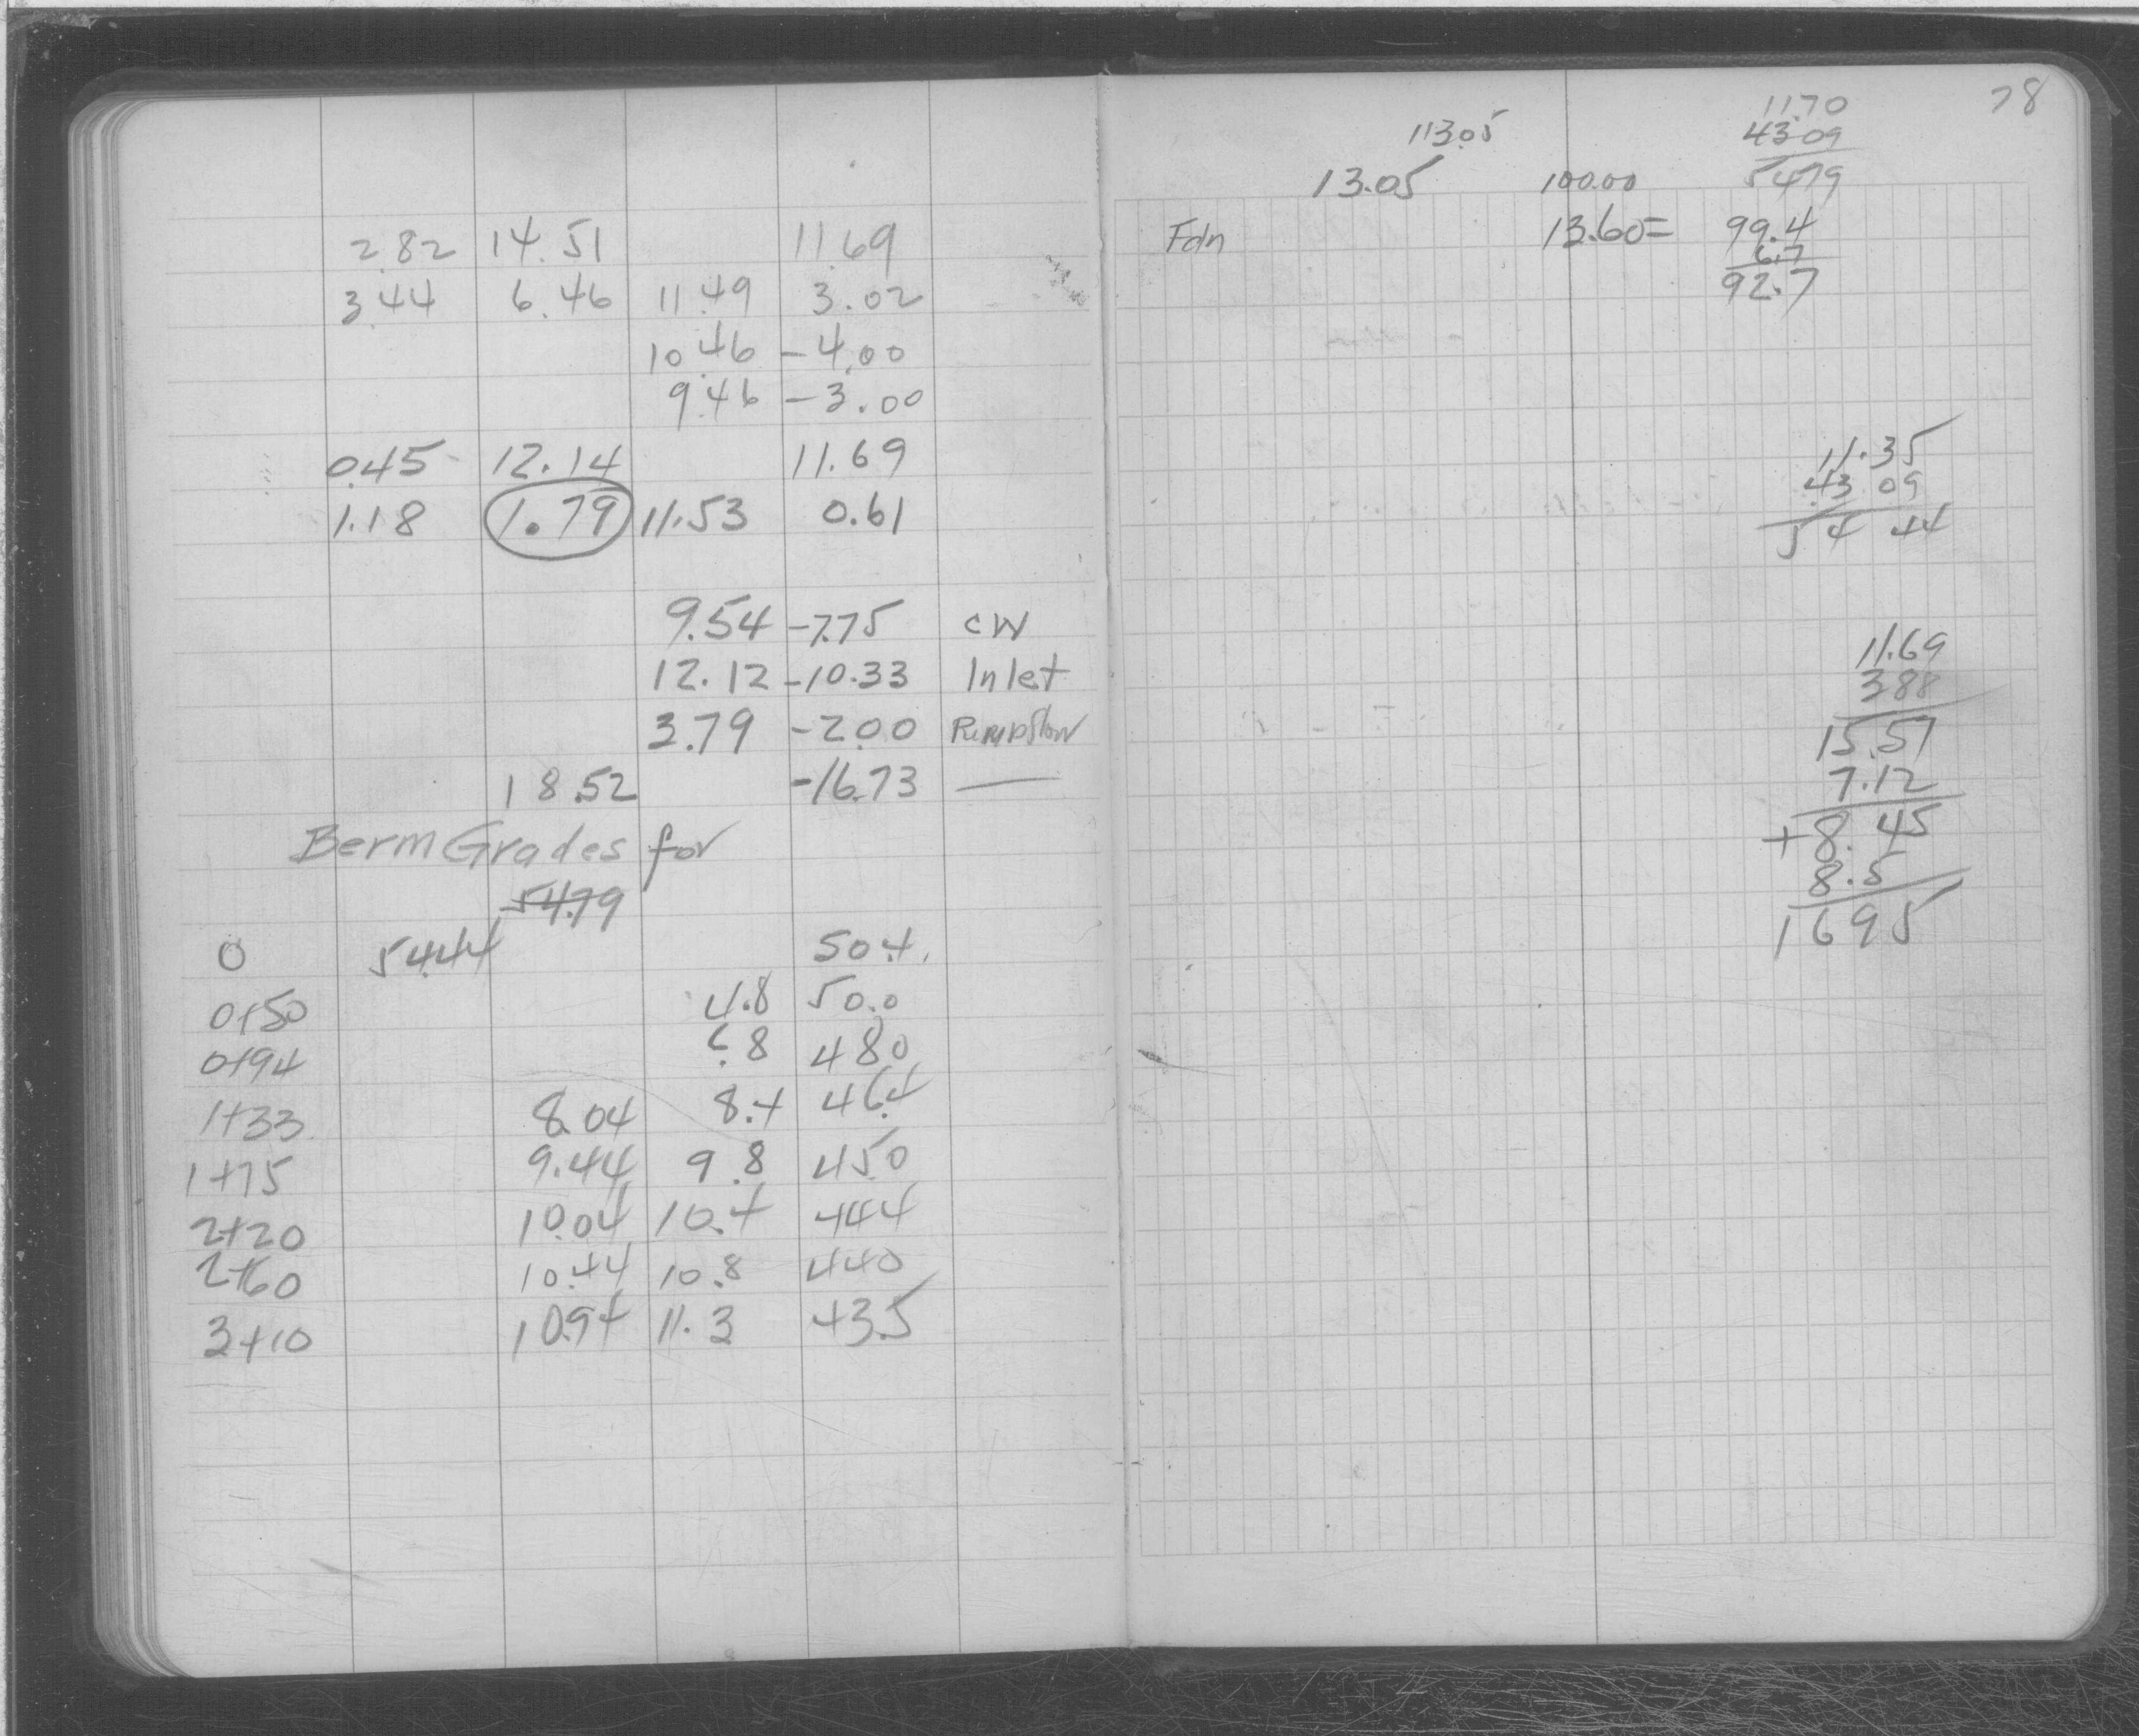 2.82 14.51 11.69
3.44 6.46 11.49 3.02
10.46 -4.00
9.46 -3.00
0.45 12.14 11.69
1.18 1.79 11.53 0.61
9.54 -7.75 CW
12.12 -10.33 Inlet
3.79 -2.00
18.52 -16.73 —
Berm Grades for
54.79
0 54.44 50.4
0+50 4.8 50.0
0+94 6.8 48.0
1+33 8.04 8.4 46.4
1+75 9.44 9.8 45.0
2+20 10.04 10.4 44.4
2+60 10.44 10.8 44.0
3+10 10.94 11.3 43.5
78
11.70
113.05 43.09
13.05 100.00 54.79
Fdn 13.60= 99.4
6.7
92.7
11.35
43 09
54 44
11.69
388
15.57
7.12
+8.45
8.5
1695